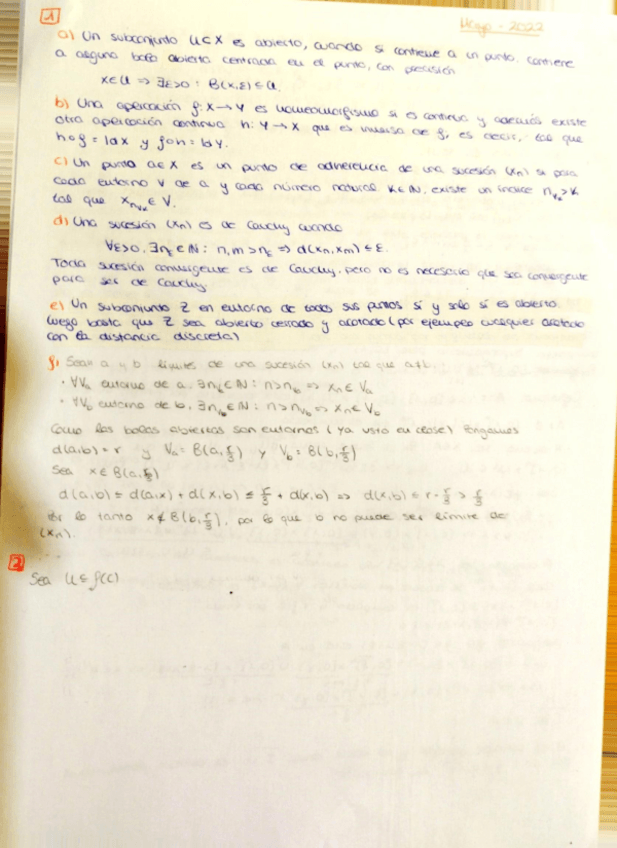 Mayo - 2022
1
a) Un subconjunto U⊂X es abierto, cuando si contiene a un punto, contiene
a alguna bola abierta centrada en el punto, con precisión
x∈U ⇒ ∃ε>0 : B(x,ε)⊆U.
b) Una aplicación f: X→Y es homeomorfismo si es continua y además existe
otra aplicación continua h: Y→X que es inversa de f, es decir, tal que
h∘f = Id X y f∘h = Id Y.
c) Un punto a∈X es un punto de adherencia de una sucesión (xn) si para
cada entorno V de a y cada número natural k∈ℕ, existe un índice n_{V_k}>k
tal que x_{n_{V_k}}∈V.
d) Una sucesión (xn) es de Cauchy cuando
∀ε>0, ∃n_ε∈ℕ : n,m>n_ε ⇒ d(xn,xm)≤ε.
Toda sucesión convergente es de Cauchy, pero no es necesario que sea convergente
para ser de Cauchy.
e) Un subconjunto Z en entorno de todos sus puntos sí y solo sí es abierto.
Luego basta que Z sea abierto cerrado y acotado (por ejemplo cualquier acotado
con la distancia discreta)
f) Sean a y b límites de una sucesión (xn) tal que a≠b.
· ∀Va entorno de a, ∃n_{V_a}∈ℕ : n>n_{V_a} ⇒ xn∈Va
· ∀Vb entorno de b, ∃n_{V_b}∈ℕ : n>n_{V_b} ⇒ xn∈Vb
Como las bolas abiertas son entornos (ya visto en clase) tengamos
d(a,b) = r y Va = B(a, r/3) y Vb = B(b, r/3)
Sea x∈B(a, r/3)
d(a,b) ≤ d(a,x) + d(x,b) ≤ r/3 + d(x,b) ⇒ d(x,b) ≥ r - r/3 > r/3
Por lo tanto x∉B(b, r/3), por lo que b no puede ser límite de
(xn).
2
Sea U⊆f(C)